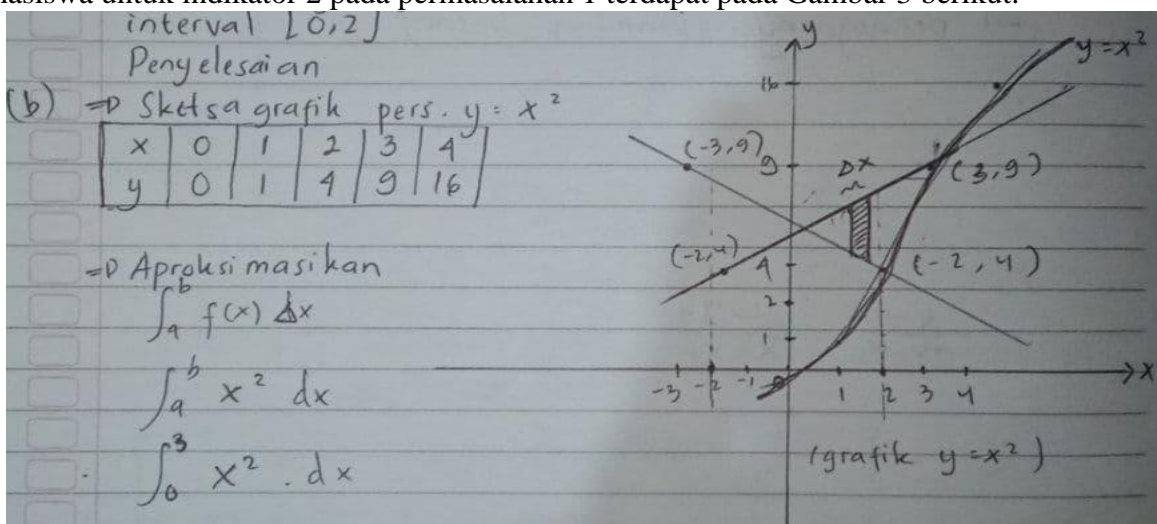 mahasiswa untuk indikator 2 pada permasalahan 1 terdapat pada Gambar 3 berikut:
interval [0,2]
Penyelesaian
(b) => Sketsa grafik pers. y = x²
x 0 1 2 3 4
y 0 1 4 9 16
=> Aproksimasikan
∫ₐᵇ f(x) dx
∫ₐᵇ x² dx
∫₀³ x² . dx
y
y = x²
16
(-3,9) 9 Δx (3,9)
(-2,4) 4 (-2,4)
2
1
-3 -2 -1 0 1 2 3 4 x
(grafik y = x²)